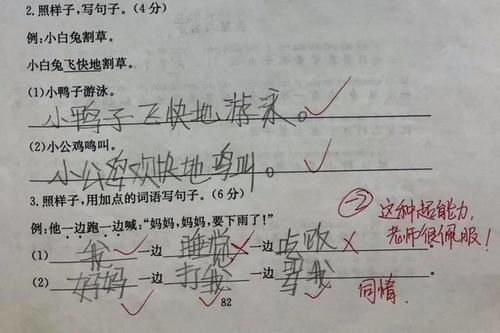 2.照样子,写句子。(4分)
例:小白兔割草。
小白兔飞快地割草。
(1)小鸭子游泳。
小鸭子飞快地游泳。
(2)小公鸡鸣叫。
小公鸡欢快地鸣叫。
3.照样子,用加点的词语写句子。(6分)
例:他一边跑一边喊:“妈妈,妈妈,要下雨了!”
(1) 我 一边 睡觉 一边 。
(2) 妈妈 一边 打我 一边 骂我 。
-2 这种超能力,
老师很佩服!
同情.
82